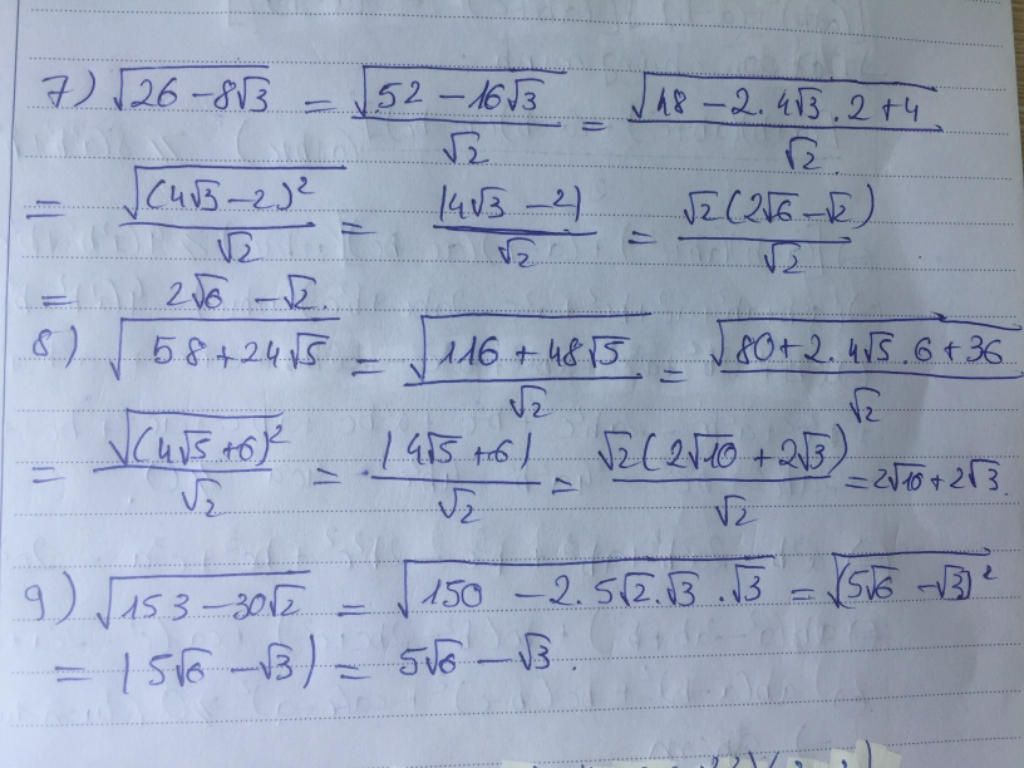 7) √(26 - 8√3) = √(52 - 16√3)/√2 = √(48 - 2.4√3.2 + 4)/√2
= √((4√3 - 2)²)/√2 = |4√3 - 2|/√2 = √2(2√6 - √2)/√2
= 2√6 - √2.
8) √(58 + 24√5) = √(116 + 48√5)/√2 = √(80 + 2.4√5.6 + 36)/√2
= √((4√5 + 6)²)/√2 = |4√5 + 6|/√2 = √2(2√10 + 2√3)/√2 = 2√10 + 2√3.
9) √(153 - 30√2) = √(150 - 2.5√2.√3.√3) = √((5√6 - √3)²)
= |5√6 - √3| = 5√6 - √3.